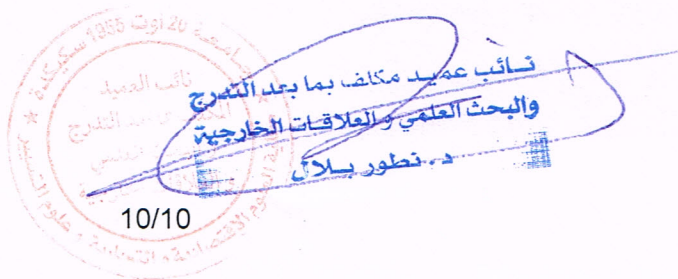 جامعة 20 أوت 1955 سكيكدة
نائب العميد
نـائب عميـد مكلف بما بعد التدرج
والبحث العلمي والعلاقـات الخارجية
د. نطور بـلال
10/10